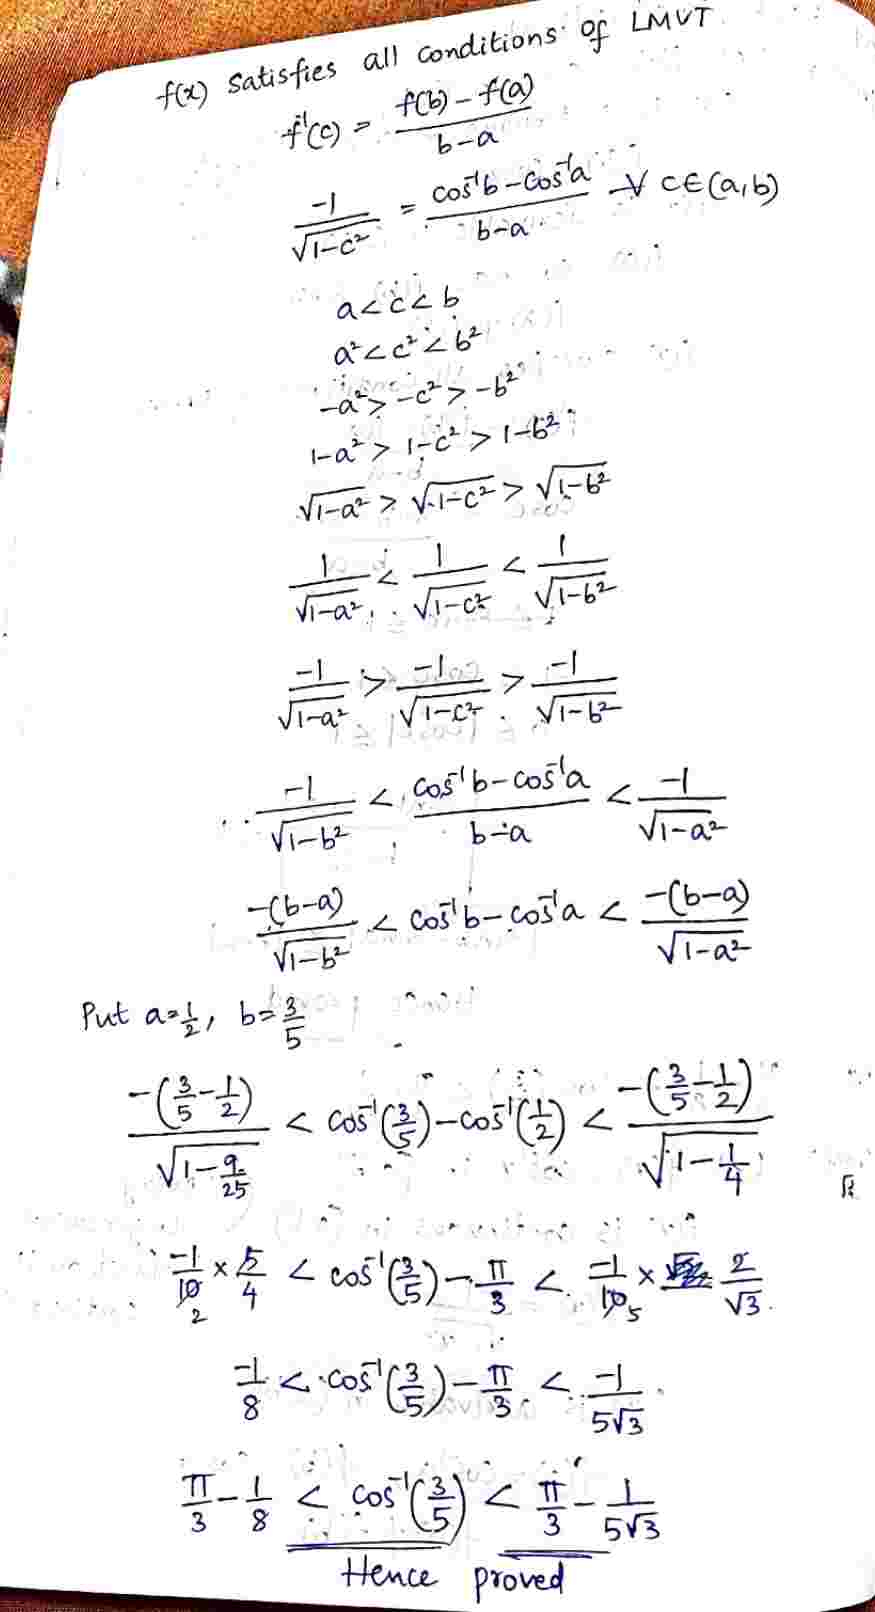 f(x) satisfies all conditions of LMVT
f'(c) = (f(b) - f(a))/(b-a)
-1/√(1-c²) = (cos⁻¹b - cos⁻¹a)/(b-a) ∀ c∈(a,b)
a<c<b
a²<c²<b²
-a²>-c²>-b²
1-a² > 1-c² > 1-b²
√(1-a²) > √(1-c²) > √(1-b²)
1/√(1-a²) < 1/√(1-c²) < 1/√(1-b²)
-1/√(1-a²) > -1/√(1-c²) > -1/√(1-b²)
-1/√(1-b²) < (cos⁻¹b - cos⁻¹a)/(b-a) < -1/√(1-a²)
-(b-a)/√(1-b²) < cos⁻¹b - cos⁻¹a < -(b-a)/√(1-a²)
Put a=1/2, b=3/5
-(3/5 - 1/2)/√(1-9/25) < cos⁻¹(3/5) - cos⁻¹(1/2) < -(3/5 - 1/2)/√(1-1/4)
-1/10 2 × 5/4 < cos⁻¹(3/5) - π/3 < -1/10 5 × 2/√3
-1/8 < cos⁻¹(3/5) - π/3 < -1/5√3
π/3 - 1/8 < cos⁻¹(3/5) < π/3 - 1/5√3
Hence proved